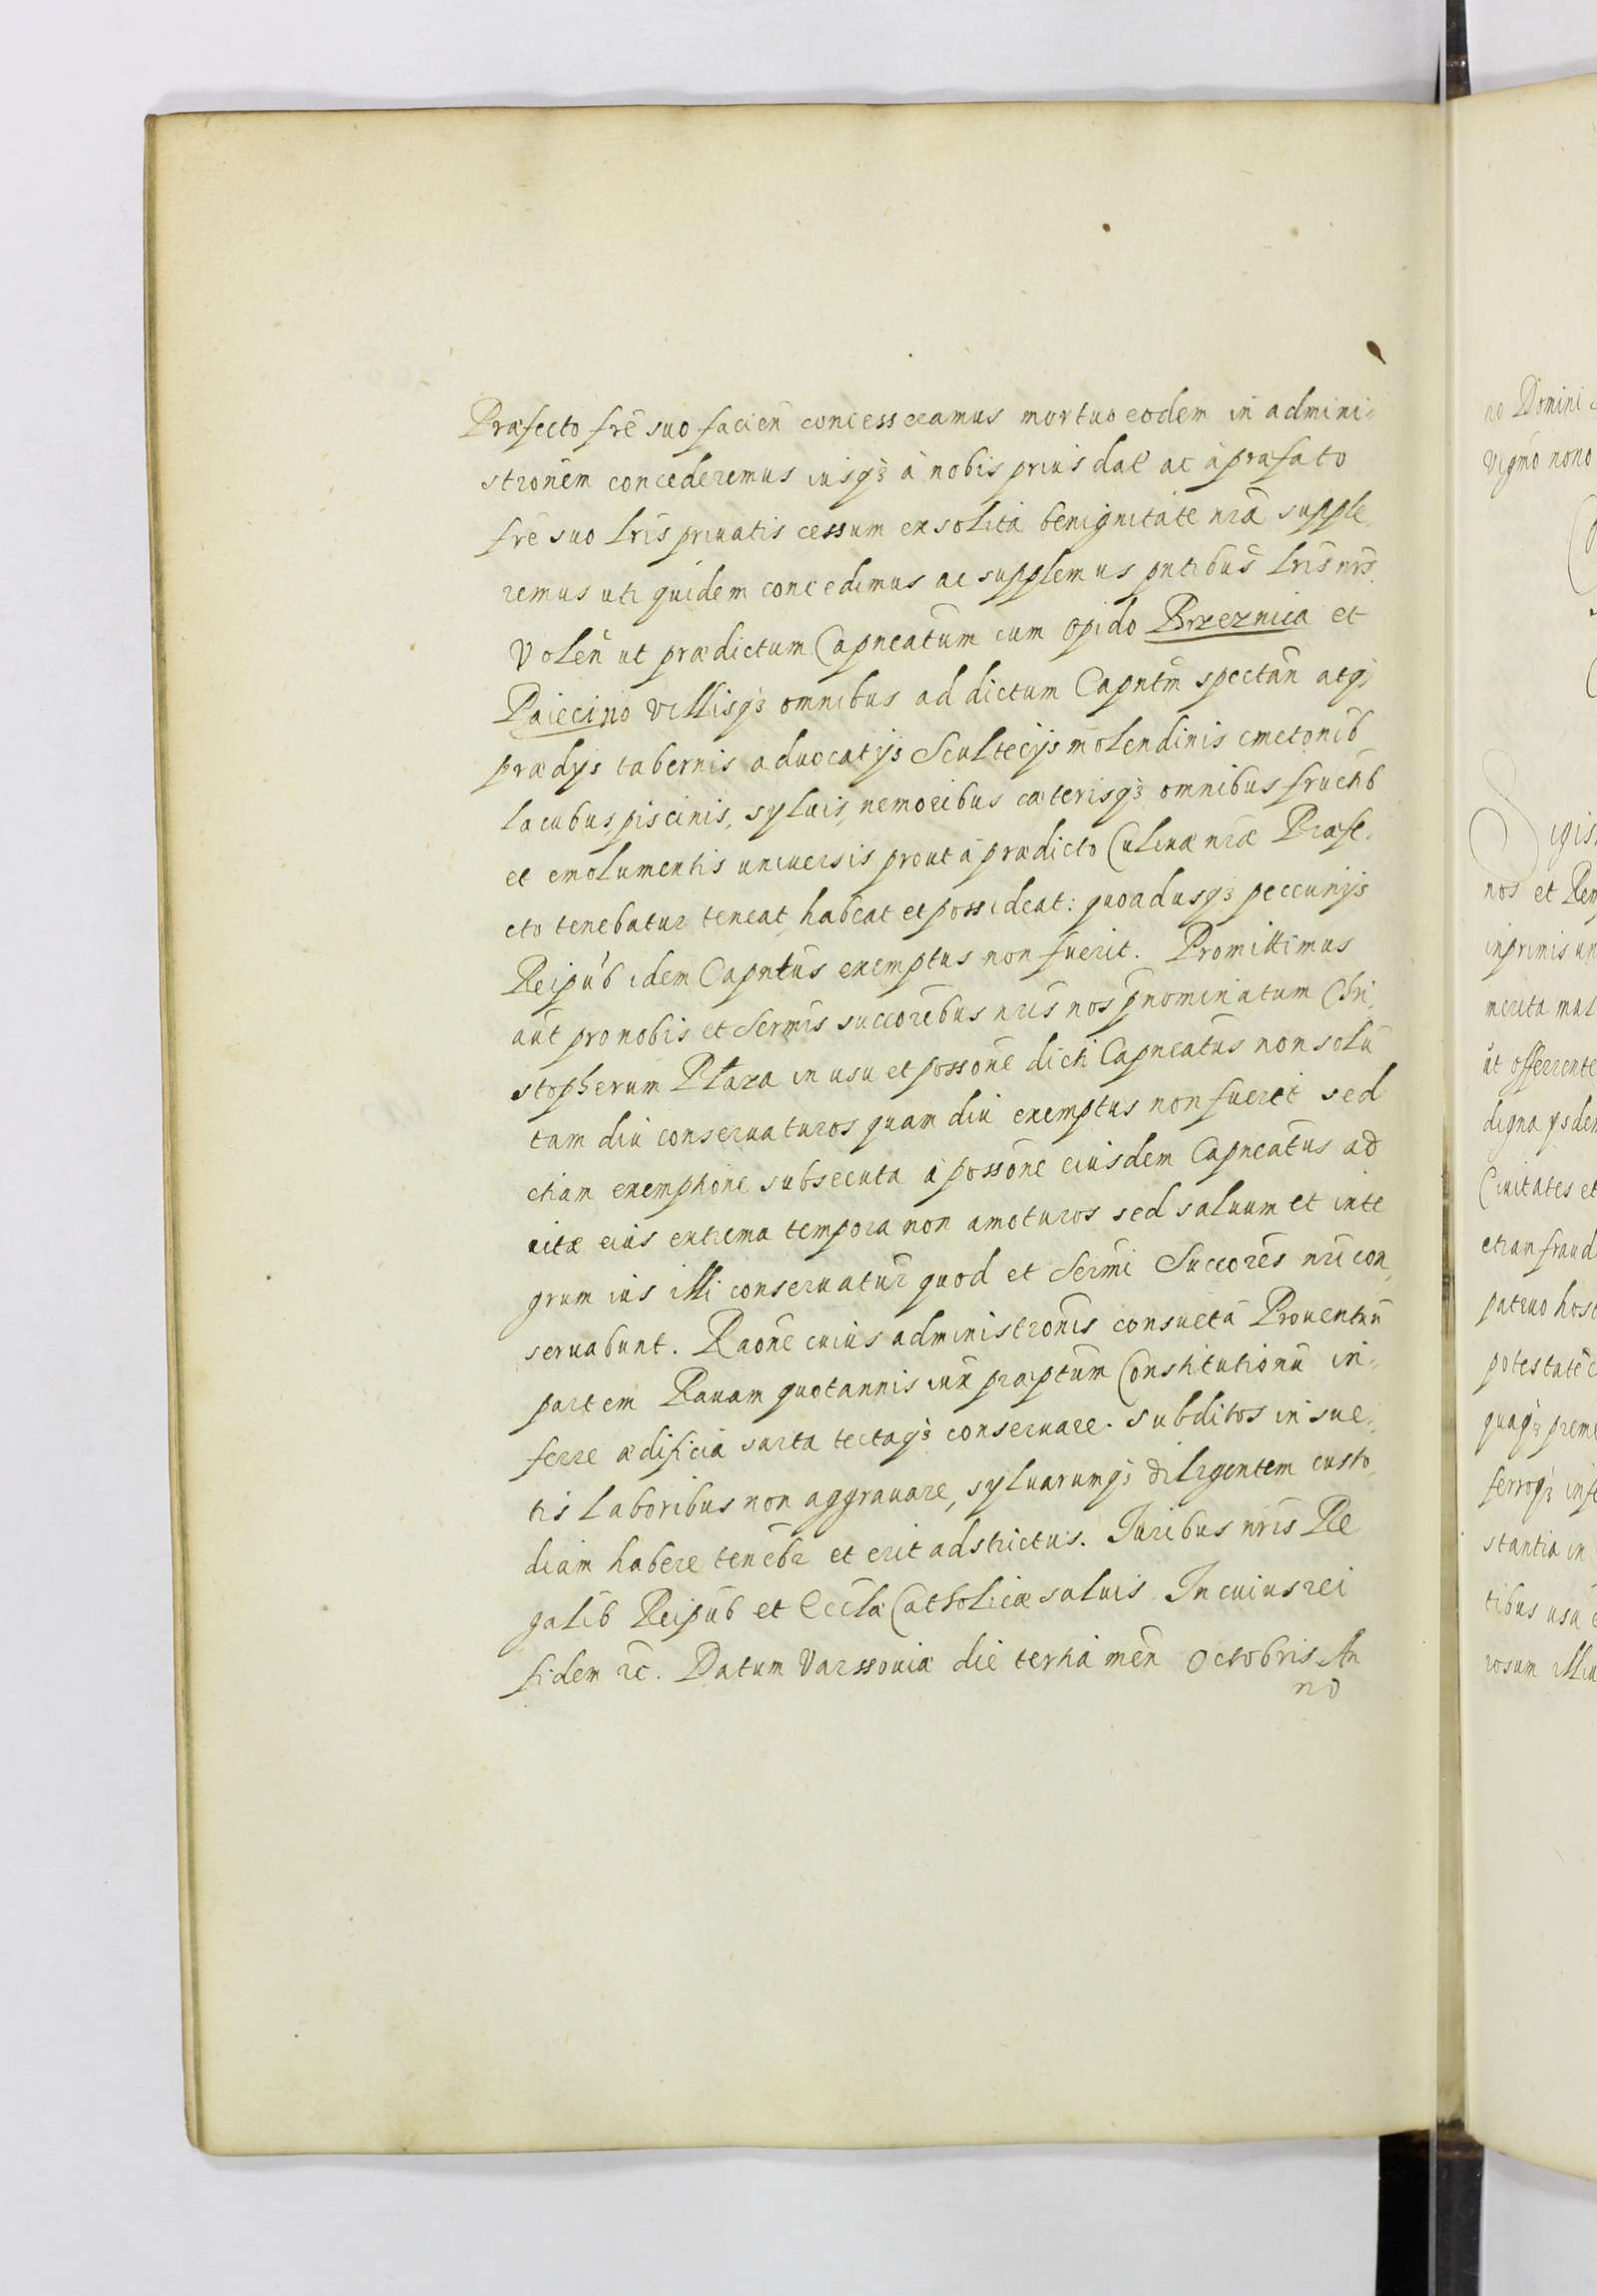 Præfecto frē suo facien̄ concessceamus mortuo eodem in admini-
stronēm concederemus iusq3 à nobis prius dat̄ ac à præfato
frē suo lrīs priuatis cessum ex solita benignitate nrā supple
remus uti quidem concedimus ac supplemus pntibus lrīs nrīs
Volen̄ ut prædictum Capneatum cum opido Brzeznica et
Paiecżno villisq3 omnibus ad dictum Capntm̄ spectan̄ atq3
prædijs tabernis aduocatijs Scultecijs molendinis cmetonib
lacubus piscinis, syluis, nemoribus cæterisq3 omnibus fructib
et emolumentis uniuersis prout à prædicto Culinæ nræ Præfe-
cto tenebatur teneat, habeat et possideat: quoadusq3 peccunijs
Reipub idem Capntus exemptus non fuerit. Promittimus
aut̄ pro nobis et Sermis succoribus nris nos pnominatum Chri-
stopherum Płaza in usu et possone dicti Capneatus non solū
tam diu conseruaturos quam diu exemptus non fuerit sed
etiam exemptione subsecuta à possone eiusdem Capneatus ad
uitæ eius extrema tempora non amoturos sed saluum et inte
grum ius illi conseruatur quod et Sermi Succores nri con-
seruabunt. Raone cuius administronis consueta Prouentuū
partem Rauam quotannis iux præptum Constitutionū in-
ferre ædificia sarta tectaq3 conseruare. subditos insue-
tis laboribus non aggrauare, syluarumq3 diligentem custo-
diam habere tenebr et erit adstrictus. Juribus nris Re
galib Reipub et Eccla Catholicæ saluis. In cuius rei
fidem rc. Datum Varssouiæ die tertia men̄ Octobris An
no
no Domini
Vigmo nono
Sigis
nos et Rem
inprimis un
merita mal
ut offerrente
digna ysdem
Ciuitates et
etiam fraud
patruo host
potestate c
quaq3 preme
ferroq3 inf
stantia in
tibus usu e
rosum illiu